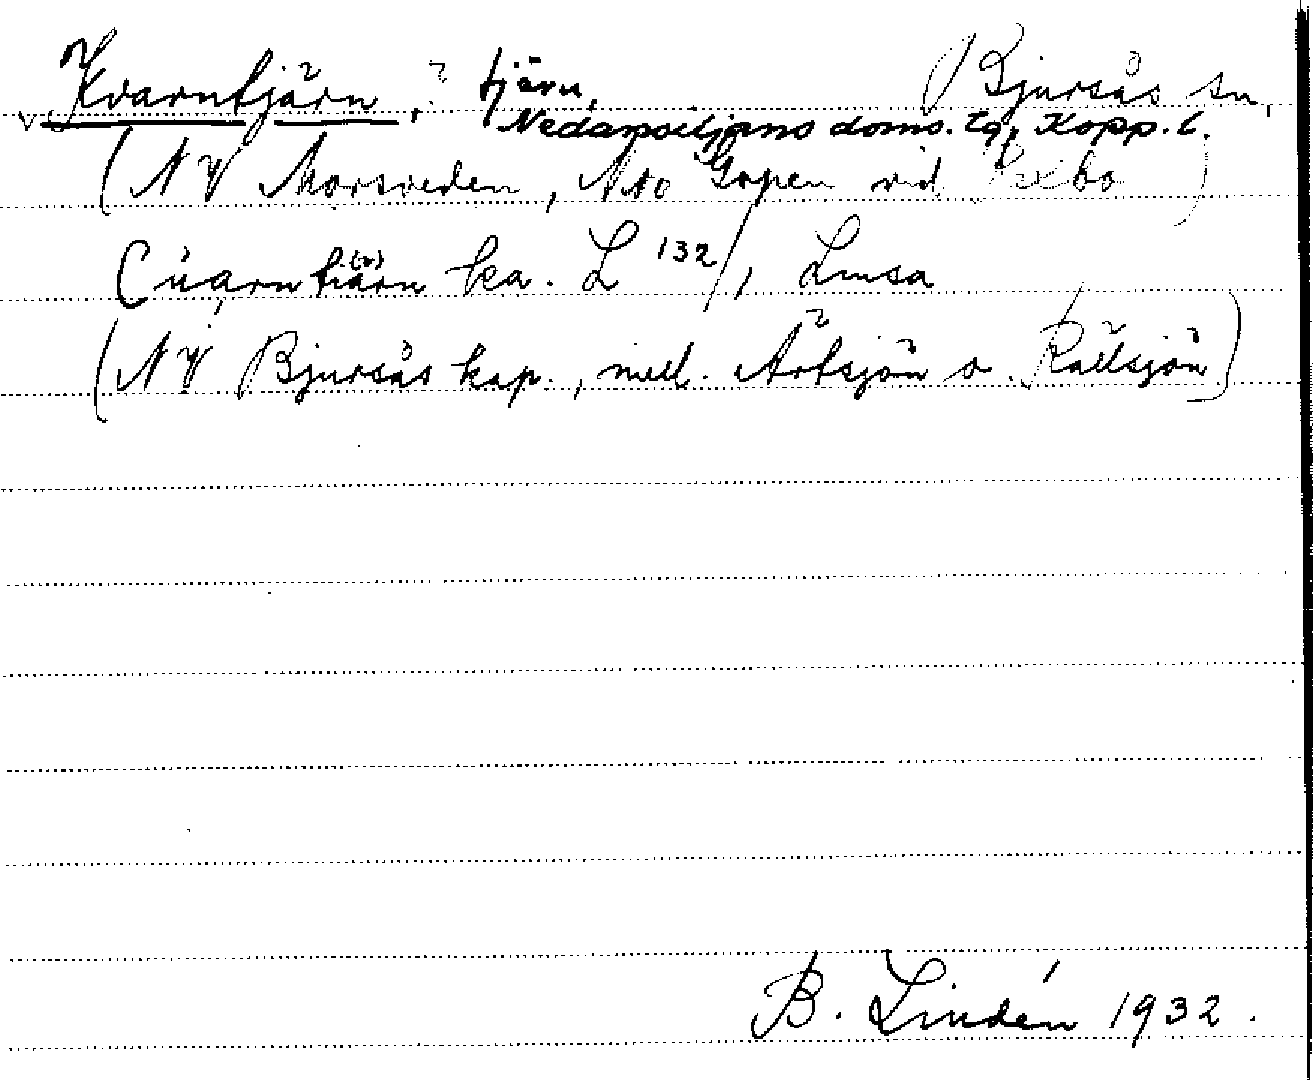 Kvarntjärn, ? tjärn, Bjursås sn,
Nedansiljans doms. tg, Kopp. l.
(NV Morsveden, NNO Gopen vid
Cuarntiärn ka. L 132/, Lumsa
(NV Bjursås kap., mell. Ärtsjön o. Rällsjön)
B. Lindén 1932.